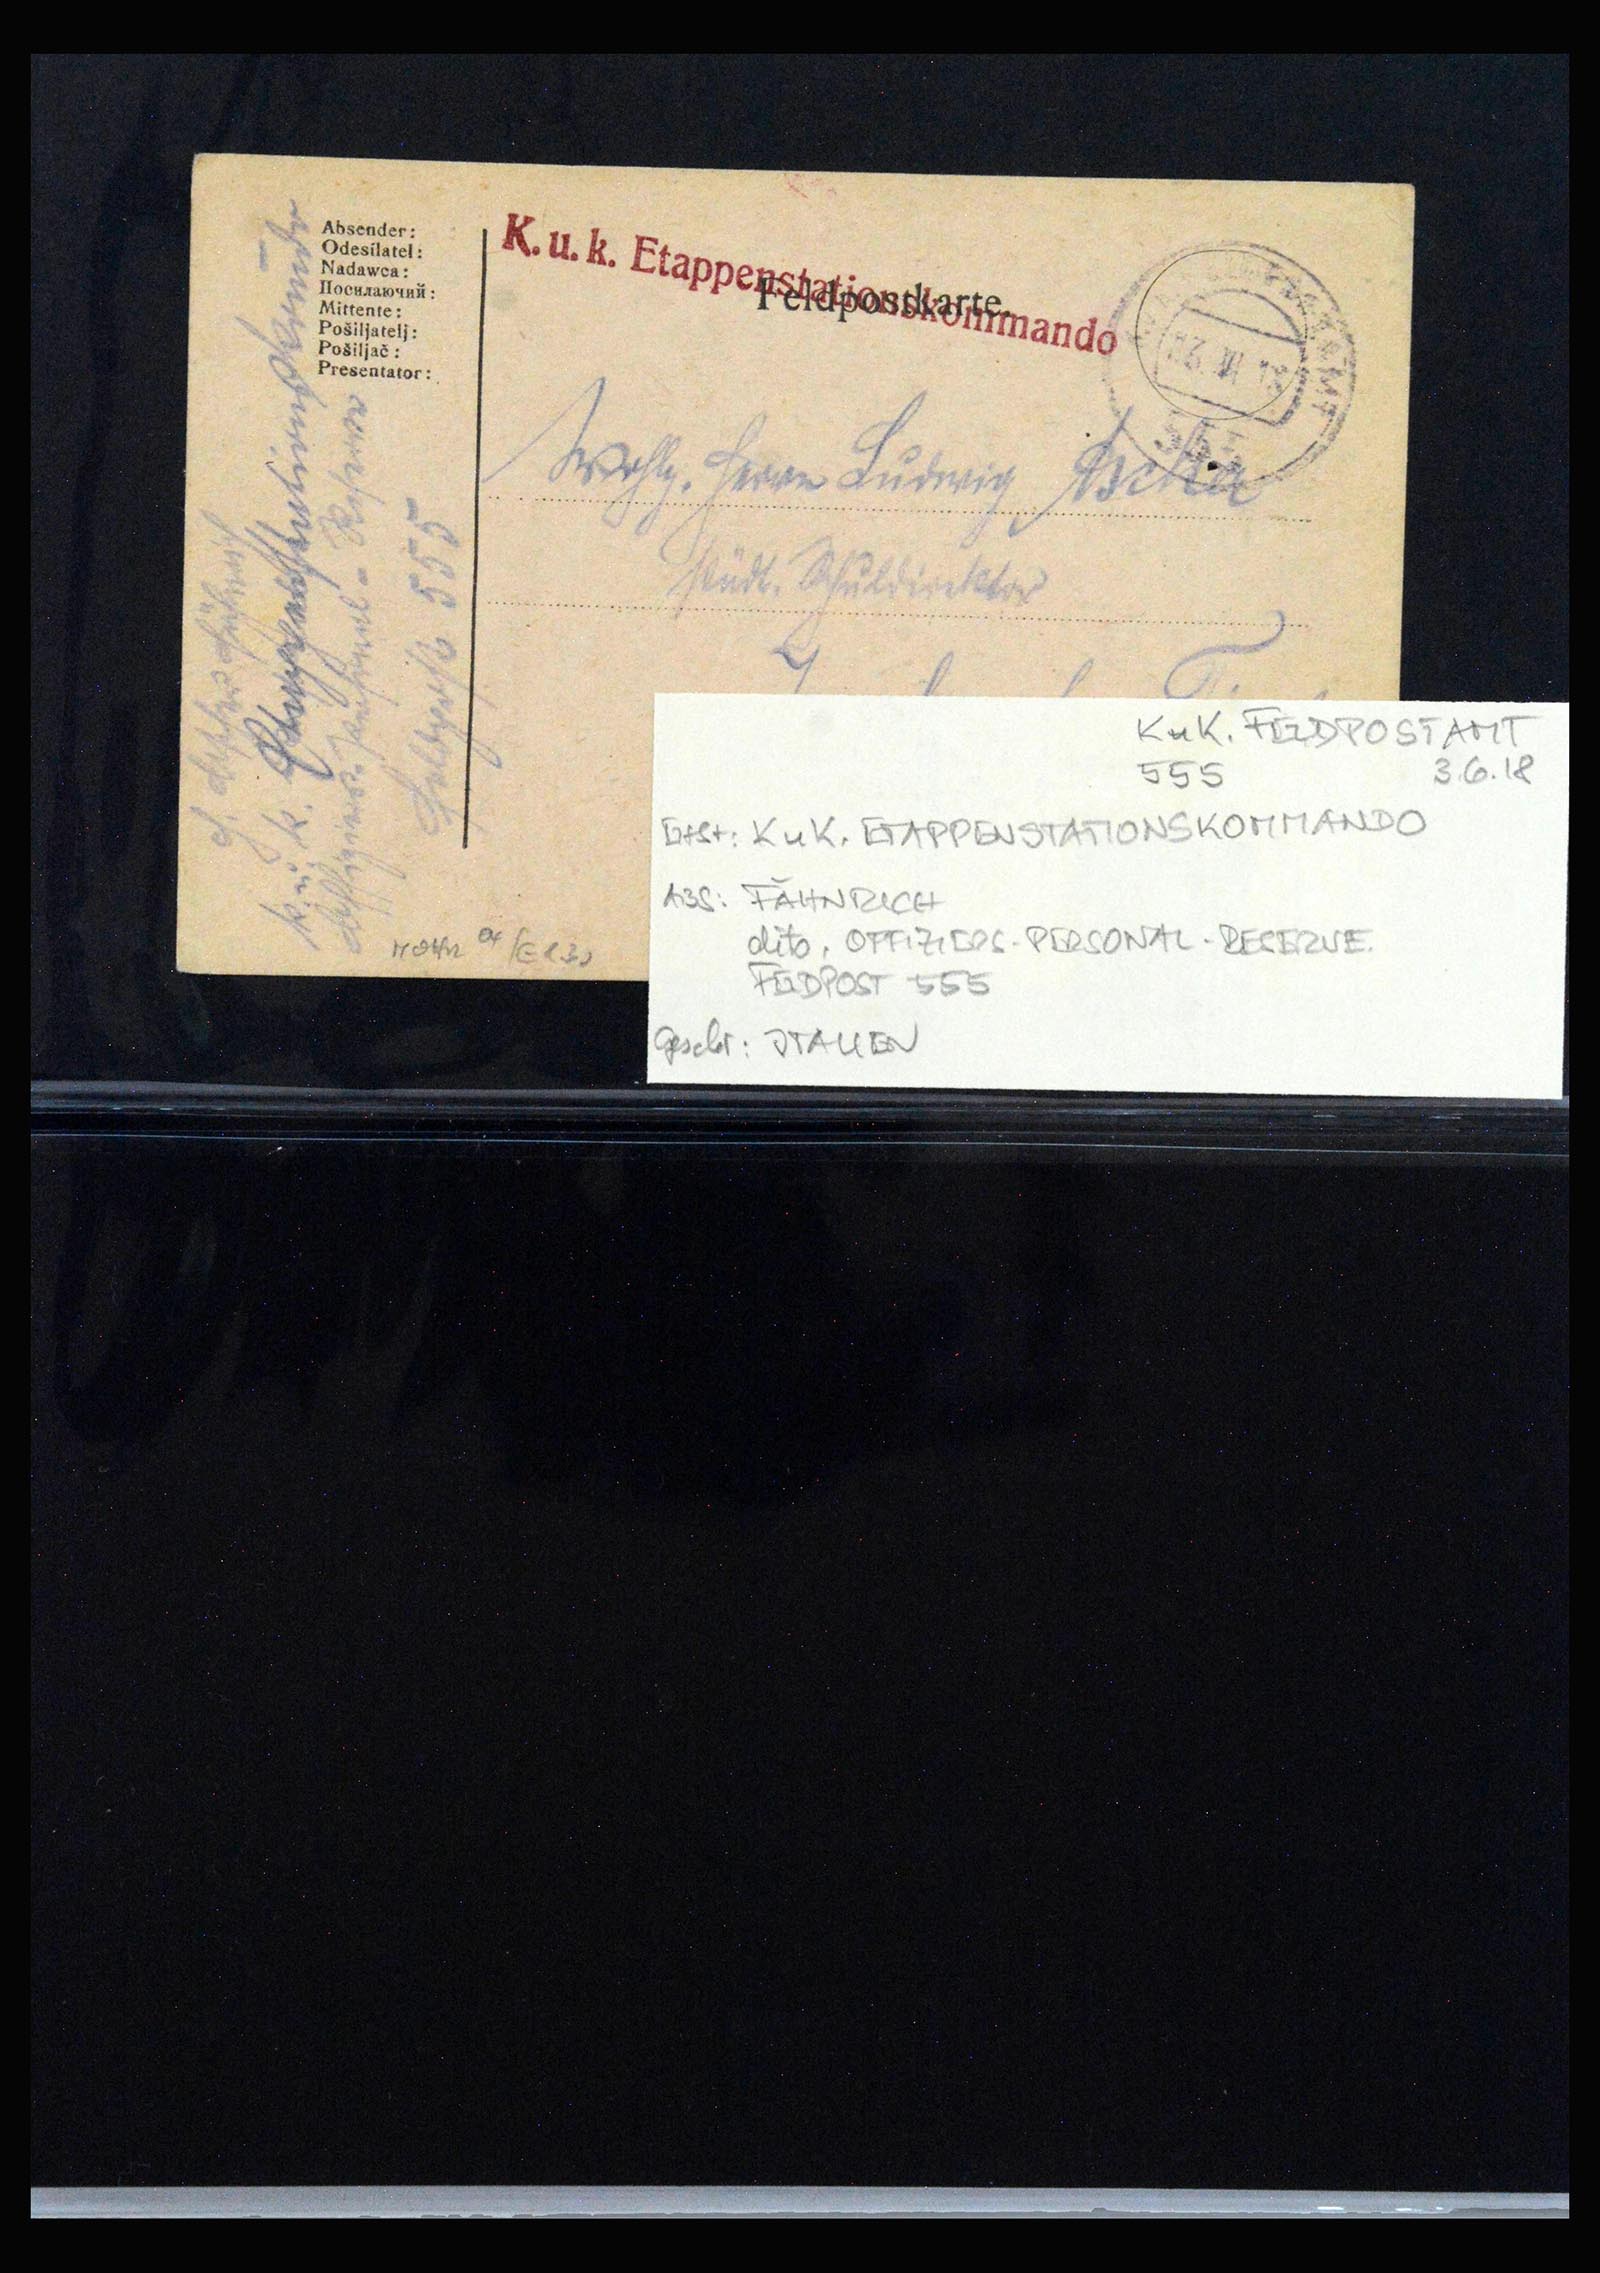 Absender:
Odesílatel:
Nadawca:
Посилаючий:
Mittente:
Pošiljatelj:
Pošiljač:
Presentator:
K. u. k. Etappenstationskommando
Feldpostkarte.
Wohlg. Herrn Ludwig
städt. Schuldirektor
k. u. k. Etappenstationskommando
Offiziers-Personal-Reserve
Feldpost 555
K u K. FELDPOSTAMT
555 3.6.18
K u K. ETAPPENSTATIONSKOMMANDO
ABS: FÄHNRICH
dito, OFFIZIERS-PERSONAL-RESERVE.
FELDPOST 555
ITALIEN